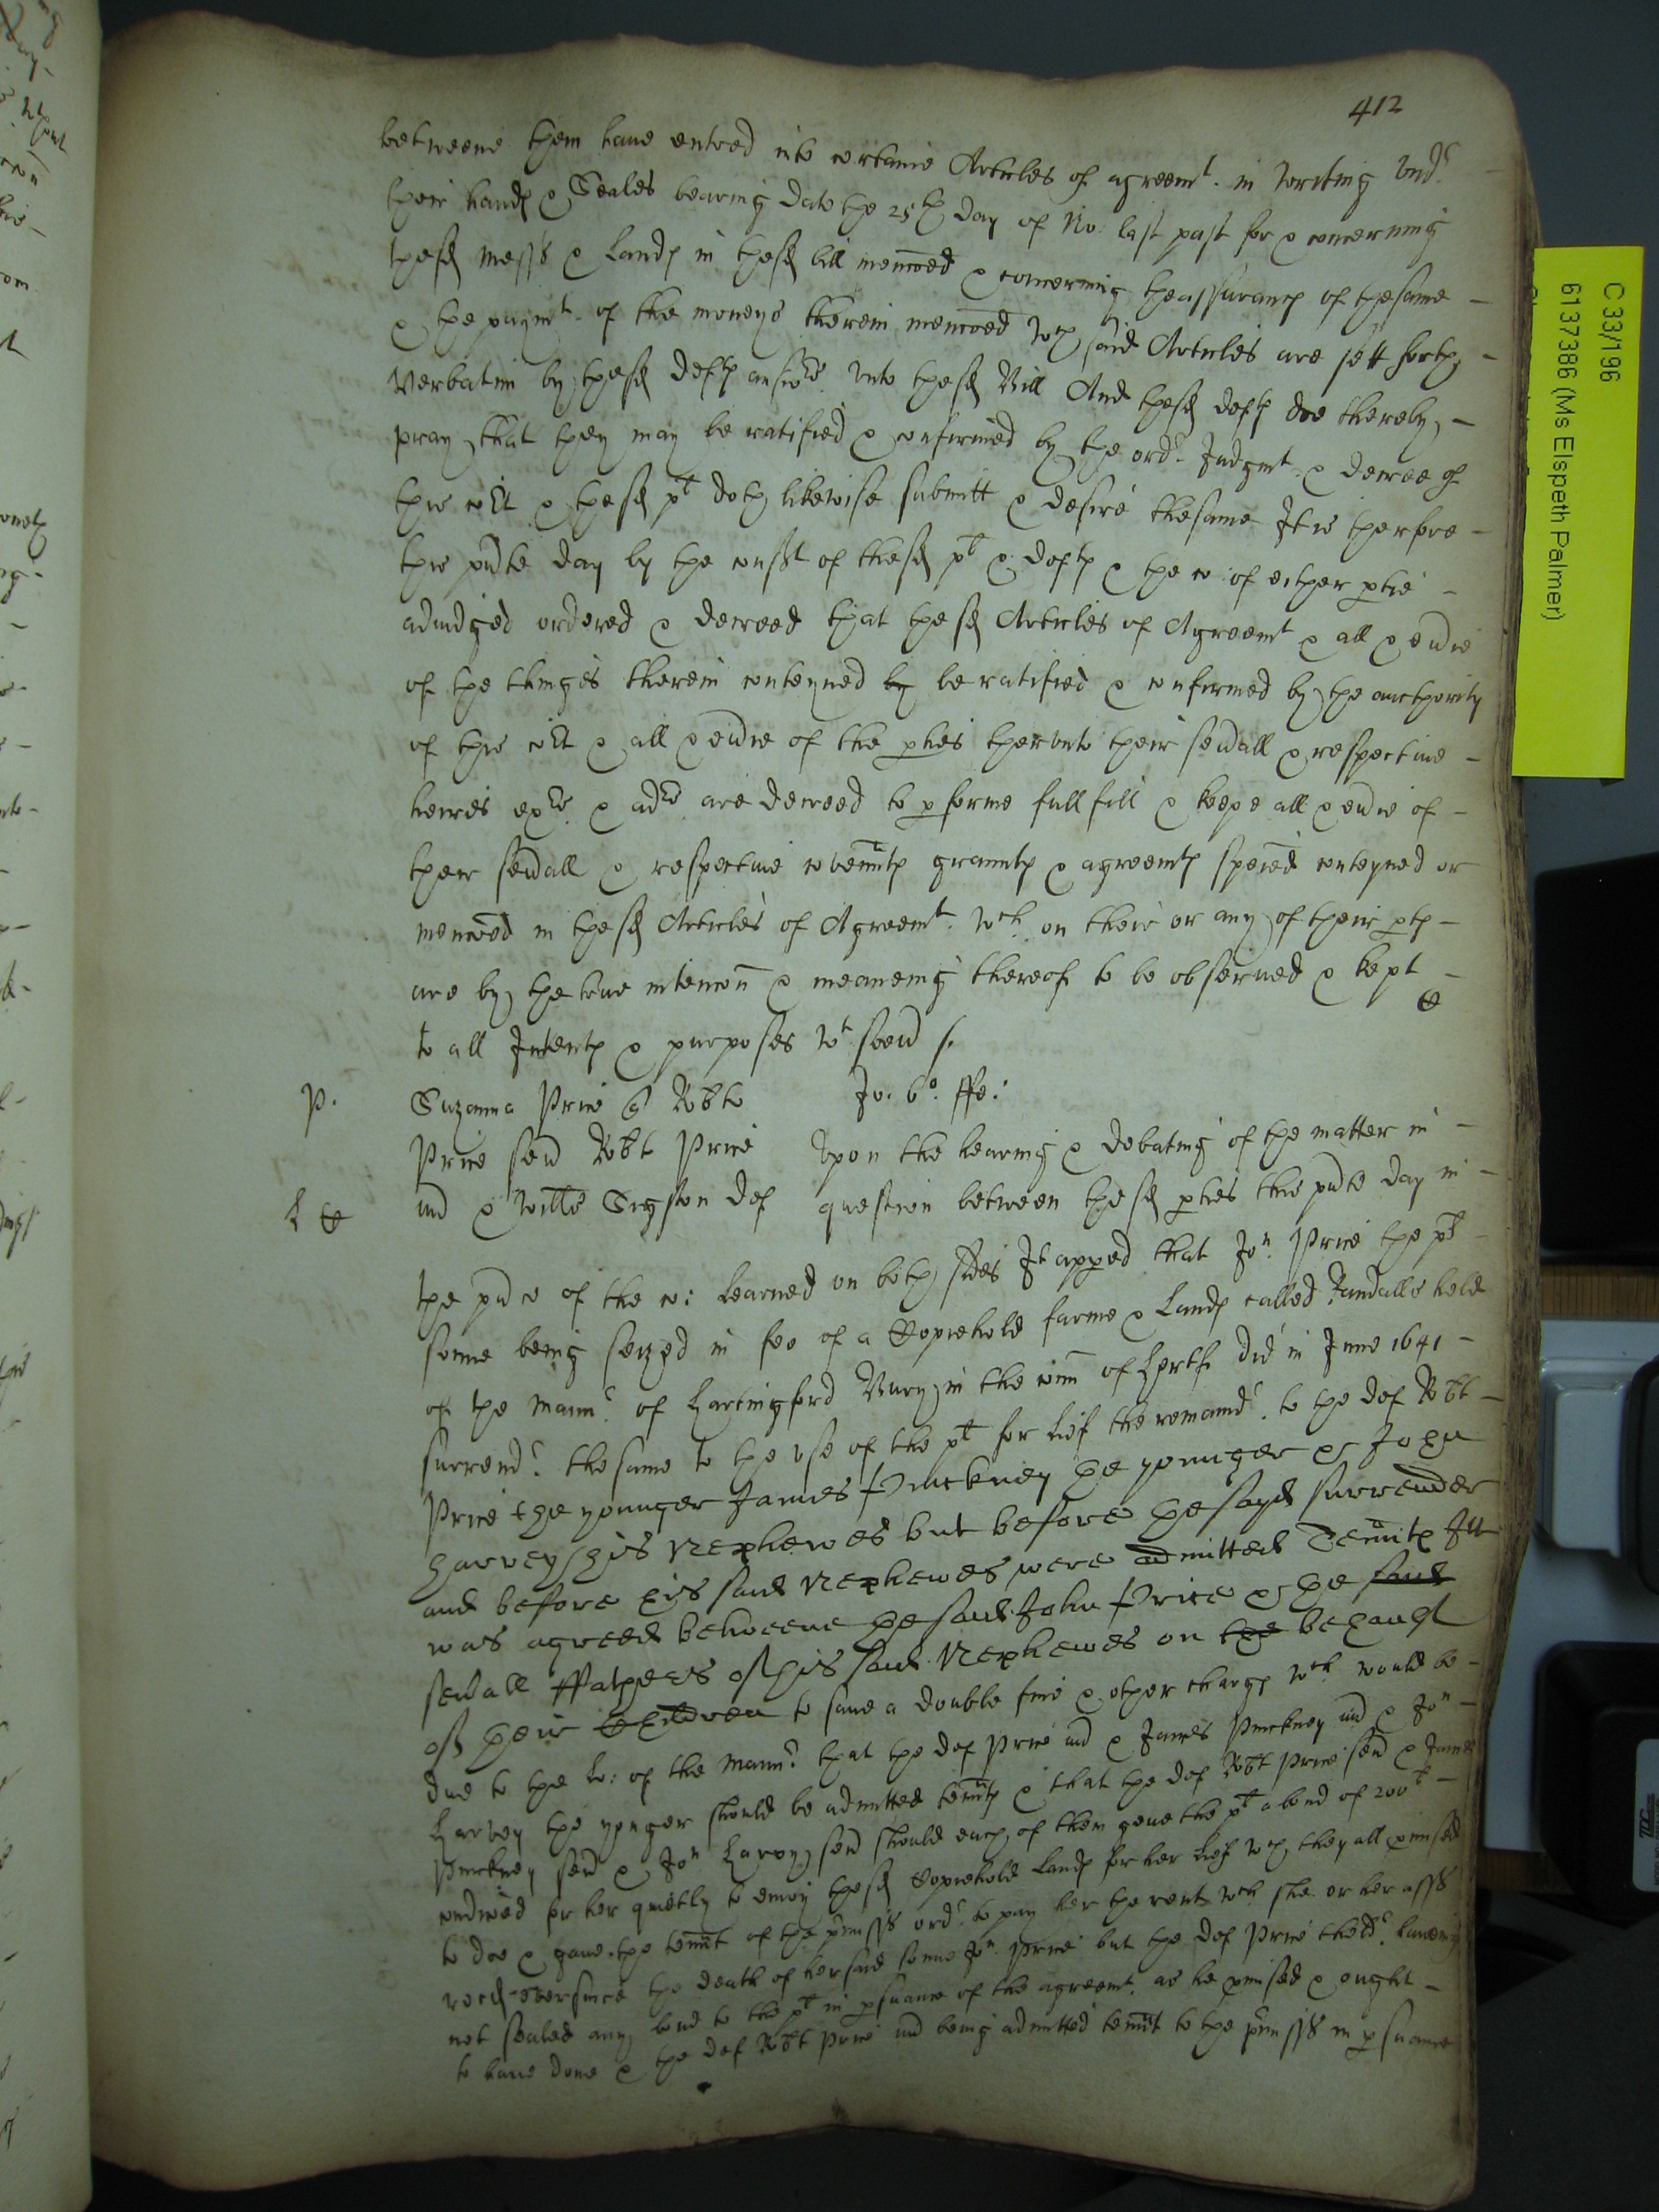 412
betweene them have entred into certaine Articles of agreemt. in writing undr
their hands & Seales bearing date the 25th day of No: last past for & concerning
the sd mess & Lands in the sd bill mencoed & concerning the assurance of the same
& the paymt of the moneys therein mencoed wch said Articles are sett forth
verbatim by the sd defts answre unto the sd Bill And the sd defts doe thereby
pray that they may be ratified & confirmed by the ordr Judgmt & decree of
this Co:rt & the sd plt doth likewise submitt & desire the same It is therfore
this pnte day by the consst of the sd plt & defts & the co: of either ptie
adiudged ordered & decreed that the sd Articles of Agreemt & all & evrie
of the thinges therein conteyned by be ratified & confirmed by the aucthority
of this Crt & all & evrie of the pties therunto their sevrall & respective
heires exrs & adrs are decreed to pforme fullfill & keepe all & evrie of
their sevrall & respective covennts graunts & agreemts specied conteyned or
mencoed in the sd Articles of Agreemt. wch on their or any of their pts
are by the true intencon & meaneing thereof to be observed & kept
to all Intents & purposes
P. Suzanna Price Robto Jo. 6o. ffe:
Price sen Robt Price Upon the hearing & debating of the matter in
iun & Willo Sigston def question between the sd pties this pnte day in
the pnce of the co: Learned on both sides It apped that Jon. Price the plts
sonne being seized in fee of a Copiehold farme & Lands called Randalls held
of the Mannr. of Hartingford Bury in the com of Hertf did in June 1641
surrendr. the same to the use of the plt for lief the remaindr. to the def Robt
Price the younger James Pinckney the younger & John
Harvey his Nephewes but before the sayd surrender
and before his said Nephewes were admitted Tennts Itt
was agreed betweene the said John Price & the said
sevrall ffathers of his said Nephewes on the behaulf
of their Children to save a double fine & other charges wch would be
due to the Lo: of the Mannr. that the def Price iun & James Pinckney iun & Jon
Harvey the yonger should be admitted tennts & that the def Robt Price sen & James
Pinckney sen & Jon Harvy sen should each of them geve the plt a bond of 200l
condiced for her quietly to enioy the sd Copiehold Lands for her lief wch they all pmised
to doe & gave the tennt of the pmiss ordr. to pay her the rent wch she or her asss
recd ever since the death of her said sonne Jon. Price but the def Price theldr. haveing
not sealed any bond to the plt in psuance of the agreemt. as he pmised & ought
to have done & the def Robt Price iun being admitted tennt to the pmisss in psuance
C 33/196
6137386 (Ms Elspeth Palmer)